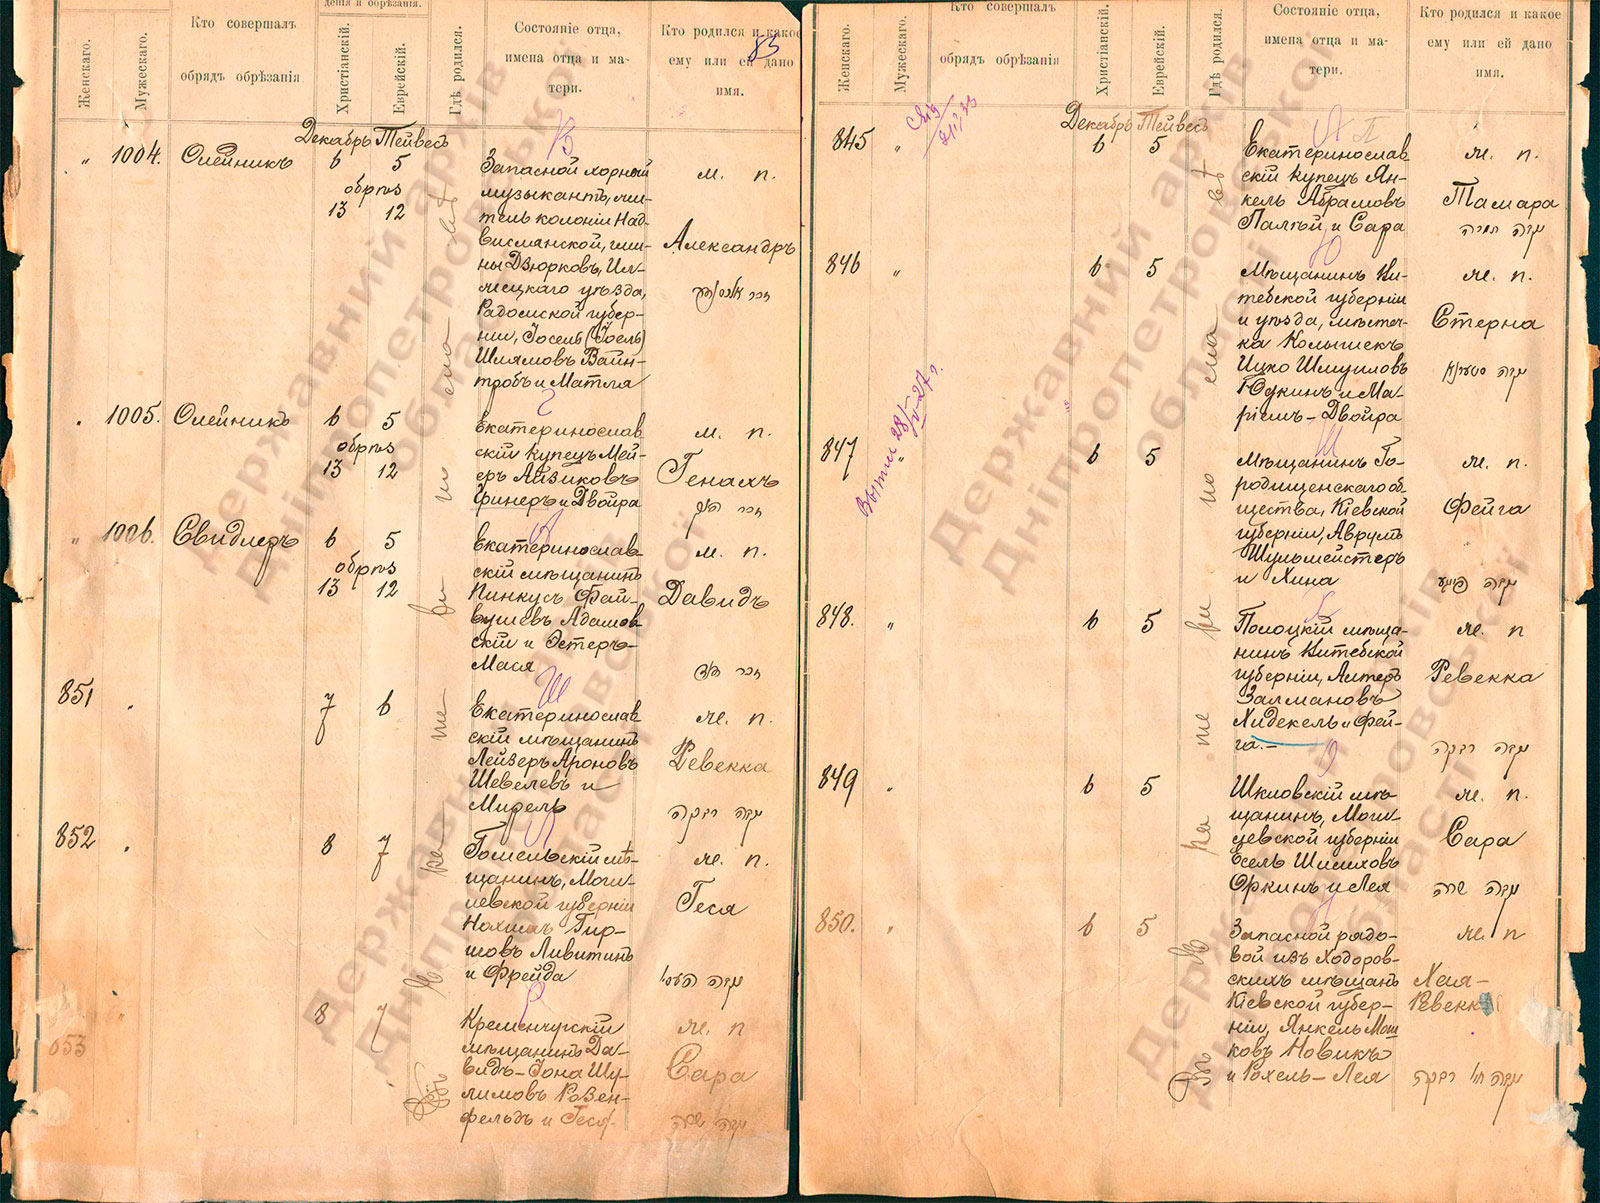 дения и обрѣзанія.
Женскаго.
Мужескаго.
Кто совершалъ
обрядъ обрѣзанія
Христіанскій.
Еврейскій.
Гдѣ родился.
Состояніе отца,
имена отца и ма-
тери.
Кто родился и какое
ему или ей дано
имя.
83
Декабрь Тейвесъ
В
„ 1004. Олейникъ 6 5
обрѣз
13 12
Запасной хорный
музыкантъ, жи-
тель колоніи Над-
висмянской, гми-
ны Дзюрковъ, Ил-
жецкаго уѣзда,
Радомской губер-
ніи, Іосель (Іоель)
Шлямовъ Вайн-
тробъ и Матля
м. п.
Александръ
זכר
1005. Олейникъ 6 5
обрѣз
13 12
Екатеринослав
скій купецъ Мей-
еръ Айзиковъ
Финеръ и Двойра
м. п.
Генахъ
זכר
„ 1006. Свидлеръ 6 5
обрѣз
13 12
А
Екатеринослав-
скій мѣщанинъ
Пинкусъ Фай-
вушевъ Адамов-
скій и Эстеръ-
Мася
м. п.
Давидъ
זכר דוד
851 7 6
Ш
Екатеринослав
скій мѣщанинъ
Лейзеръ Ароновъ
Шевелевъ и
Мирель
ж. п.
Ревекка
נקבה רבקה
852 8 7
Л
Гомельскій мѣ-
щанинъ, Моги-
левской губерніи
Нохимъ Гир-
шовъ Ливитинъ
и Фрейда
ж. п.
Геся
נקבה העסי
853 8 7
Р
Кременчугскій
мѣщанинъ Да-
видъ-Іона Шу-
лимовъ Розен-
фельдъ и Геся
ж. п
Сара
נקבה שרה
Всѣ въ Екатеринославѣ
Женскаго.
Мужескаго.
Кто совершалъ
обрядъ обрѣзанія
Христіанскій.
Еврейскій.
Гдѣ родился.
Состояніе отца,
имена отца и ма-
тери.
Кто родился и какое
ему или ей дано
имя.
Декабрь Тейвесъ
П
845 „ 6 5
Екатеринослав
скій купецъ Ян-
кель Абрамовъ
Палѣй и Сара
ж. п.
Тамара
נקבה תמרה
Ю
846 „ 6 5
Мѣщанинъ Ви-
тебской губерніи
и уѣзда, мѣстеч-
ка Колышекъ
Ицко Шмуиловъ
Юдкинъ и Ма-
ріемъ-Двойра
ж. п.
Стерна
נקבה סטערנא
Выпись
Ш
847 „ 6 5
Мѣщанинъ Го-
родищенскаго об-
щества, Кіевской
губерніи, Аврумъ
Шульмейстеръ
и Хина
ж. п.
Фейга
נקבה פייגע
Х
848. „ 6 5
Полоцкій мѣща-
нинъ Витебской
губерніи, Алтеръ
Залмановъ
Хидекель и Фей-
га.-
ж. п
Ревекка
נקבה רבקה
О
849 „ 6 5
Шкловскій мѣ-
щанинъ, Моги-
левской губерніи
Есель Шлиховъ
Оркинъ и Лея
ж. п.
Сара
נקבה שרה
Н
850. „ 6 5
Запасной рядо-
вой изъ Ходоров-
скихъ мѣщанъ
Кіевской губер-
ніи, Янкель Мош
ковъ Новикъ
и Рохель-Лея
ж. п
Хая-
Ревекка
נקבה חי' רבקה
Державний архів
Дніпропетровської
області